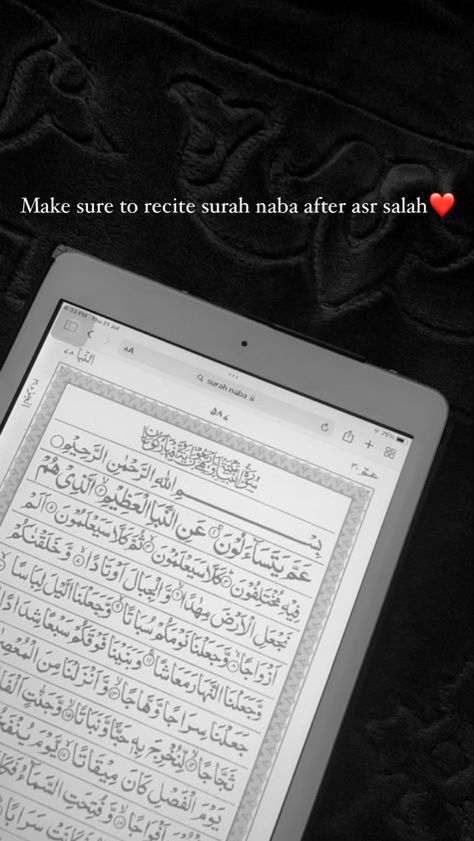 Make sure to recite surah naba after asr salah❤️
Thu 21 Jul
76%
AA
surah naba
النبا ٧٨
٥٨٤
عمّ ٣٠
بِسْمِ اللهِ الرَّحْمٰنِ الرَّحِيْمِ
عَمَّ يَتَسَآءَلُوْنَ ۝١ عَنِ النَّبَاِ الْعَظِيْمِ ۝٢ الَّذِيْ هُمْ
فِيْهِ مُخْتَلِفُوْنَ ۝٣ كَلَّا سَيَعْلَمُوْنَ ۝٤ ثُمَّ كَلَّا سَيَعْلَمُوْنَ ۝٥ اَلَمْ
نَجْعَلِ الْاَرْضَ مِهٰدًا ۝٦ وَّالْجِبَالَ اَوْتَادًا ۝٧ وَّخَلَقْنٰكُمْ
اَزْوَاجًا ۝٨ وَّجَعَلْنَا نَوْمَكُمْ سُبَاتًا ۝٩ وَّجَعَلْنَا الَّيْلَ لِبَاسًا ۝١٠
وَّجَعَلْنَا النَّهَارَ مَعَاشًا ۝١١ وَّبَنَيْنَا فَوْقَكُمْ سَبْعًا شِدَادًا
جَعَلْنَا سِرَاجًا وَّهَّاجًا ۝١٣ وَّاَنْزَلْنَا مِنَ
ثَجَّاجًا ۝١٤ لِّنُخْرِجَ بِهٖ حَبًّا وَّنَبَاتًا ۝١٥ وَّجَنّٰتٍ
يَوْمَ الْفَصْلِ كَانَ مِيْقَاتًا ۝١٧ يَّوْمَ يُنْفَخُ
اَفْوَاجًا ۝١٨ وَّفُتِحَتِ السَّمَآءُ
سَرَابًا